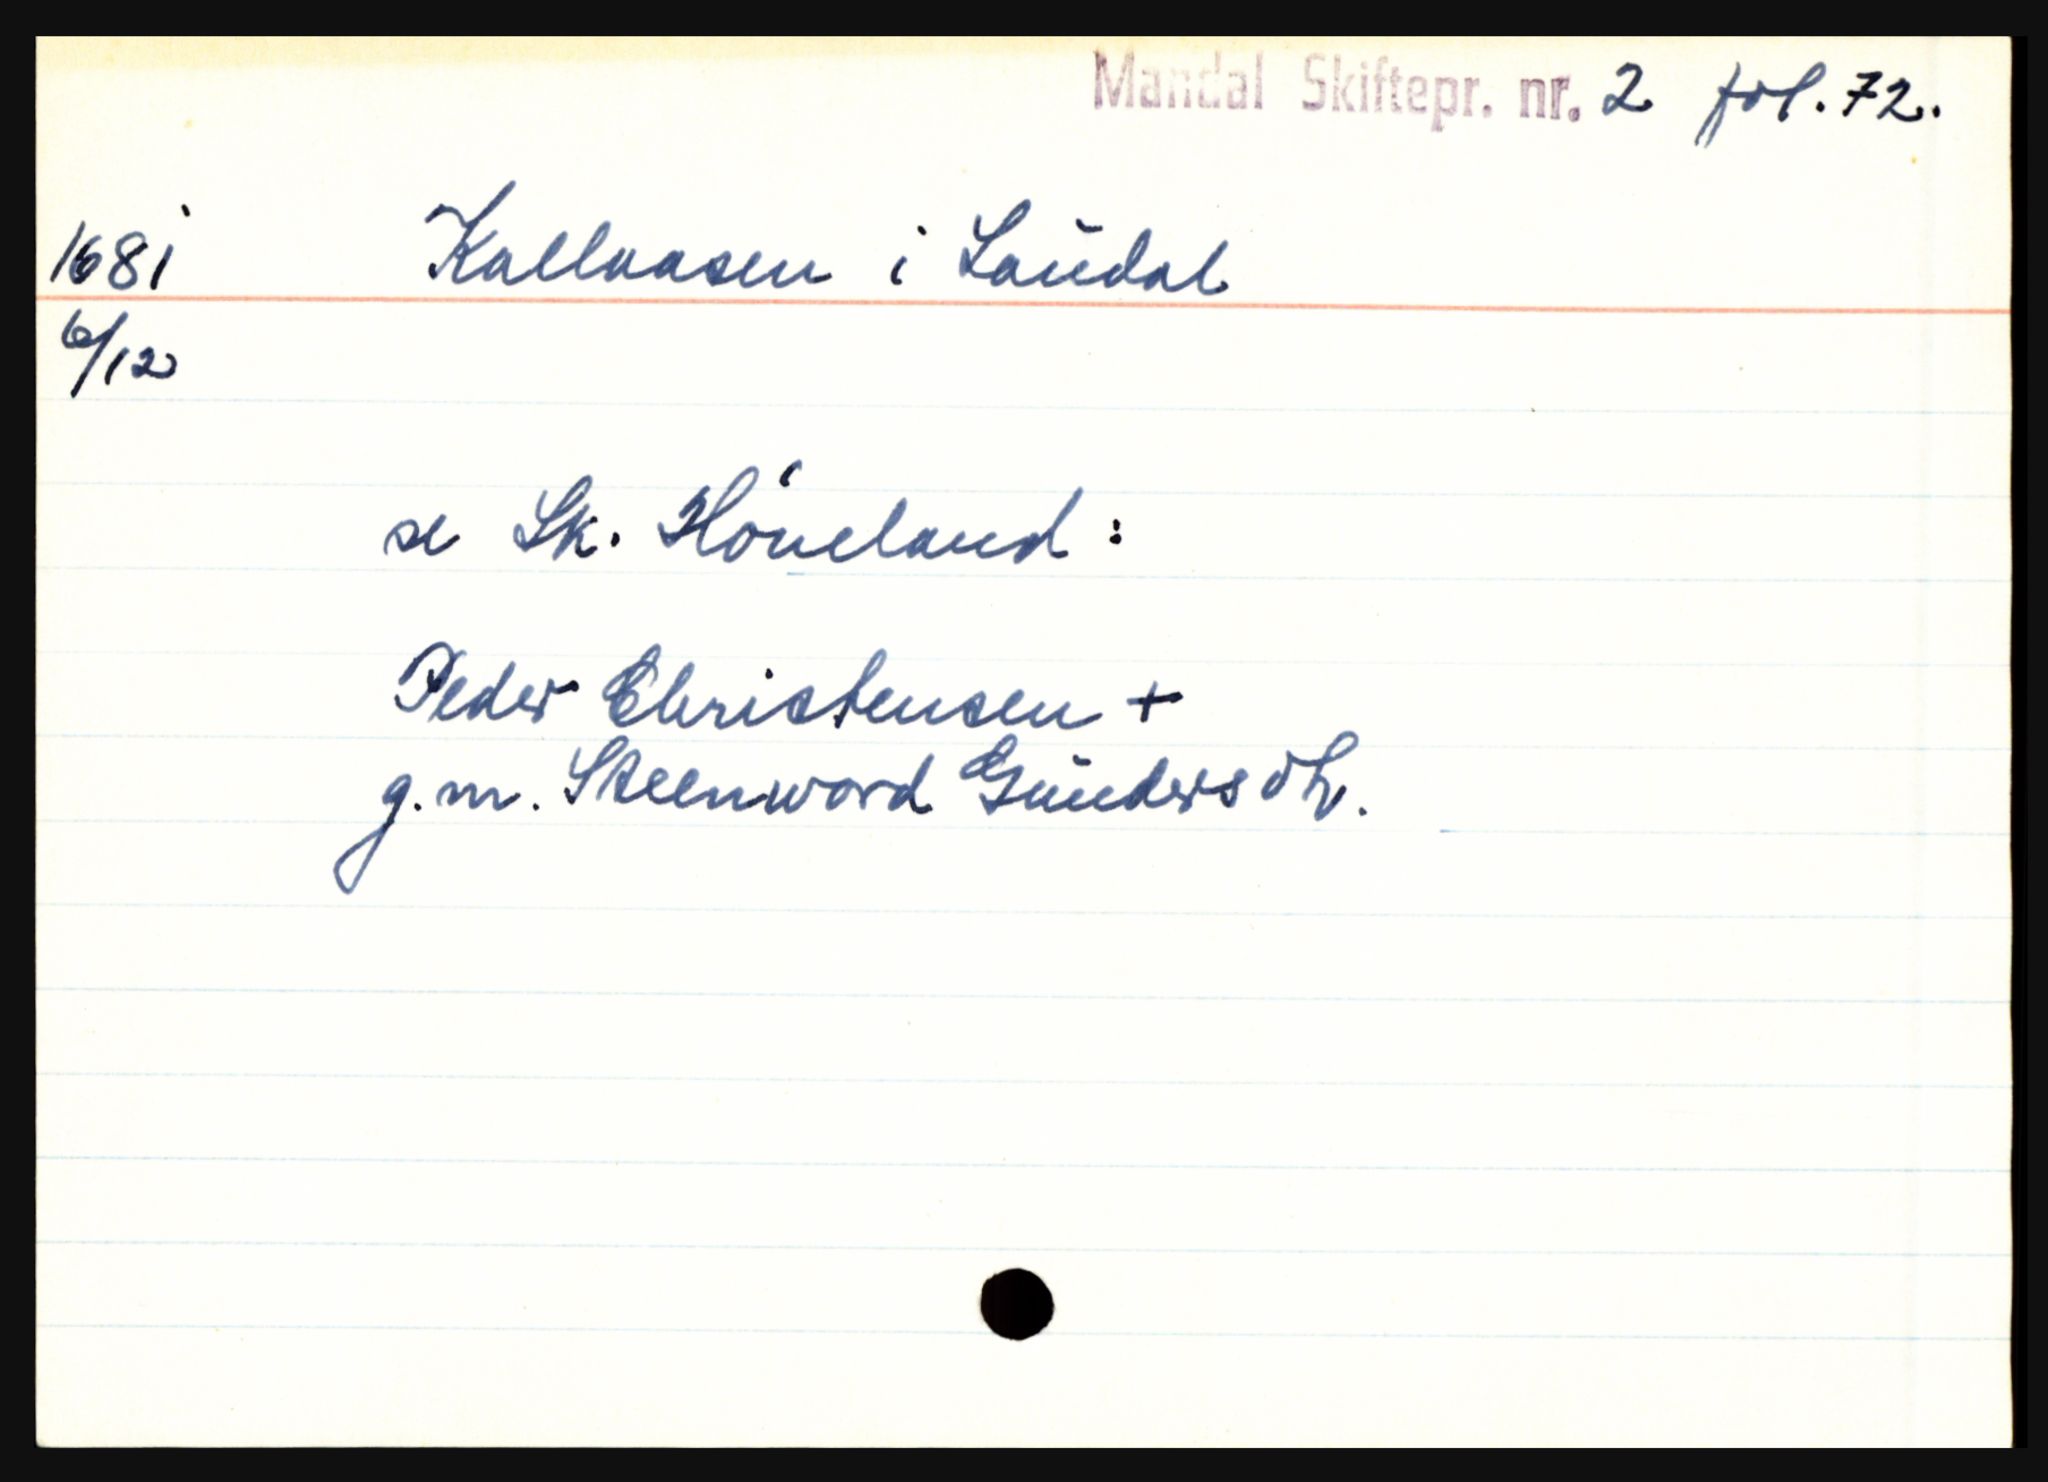 Mandal Skiftepr. nr. 2 fol. 72.
1681 Kallaasen i Laudal
6/12
se Sk. Høneland:
Peder Christensen +
g.m. Steenword Gundersdtr.